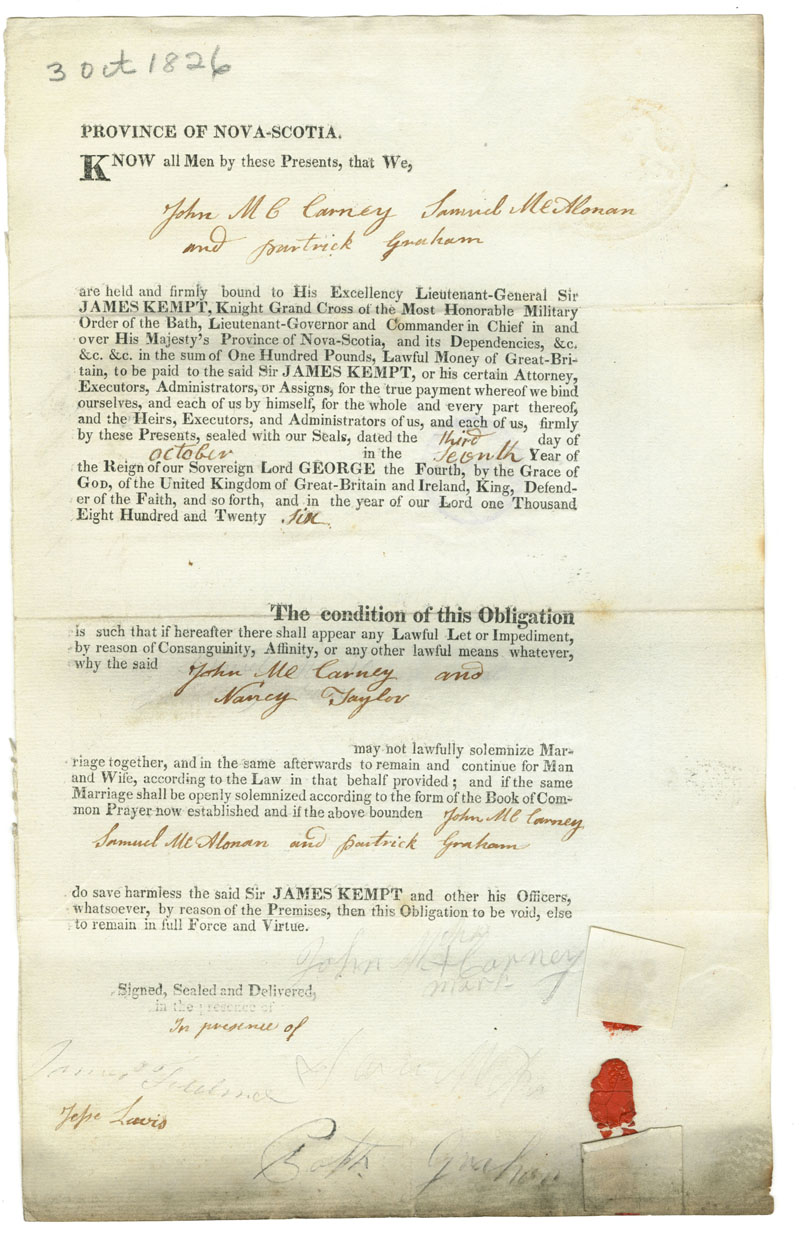 3 Oct 1826
PROVINCE OF NOVA-SCOTIA.
KNOW all Men by these Presents, that We,
John Mc Carney Samuel McAlonan
and partrick Graham
are held and firmly bound to His Excellency Lieutenant-General Sir
JAMES KEMPT, Knight Grand Cross of the Most Honorable Military
Order of the Bath, Lieutenant-Governor and Commander in Chief in and
over His Majesty's Province of Nova-Scotia, and its Dependencies, &c.
&c. &c. in the sum of One Hundred Pounds, Lawful Money of Great-Bri-
tain, to be paid to the said Sir JAMES KEMPT, or his certain Attorney,
Executors, Administrators, or Assigns, for the true payment whereof we bind
ourselves, and each of us by himself, for the whole and every part thereof,
and the Heirs, Executors, and Administrators of us, and each of us, firmly
by these Presents, sealed with our Seals, dated the third day of
october in the Year of
the Reign of our Sovereign Lord GEORGE the Fourth, by the Grace of
GOD, of the United Kingdom of Great-Britain and Ireland, King, Defend-
er of the Faith, and so forth, and in the year of our Lord one Thousand
Eight Hundred and Twenty six
The condition of this Obligation
is such that if hereafter there shall appear any Lawful Let or Impediment,
by reason of Consanguinity, Affinity, or any other lawful means whatever,
why the said John Mc Carney and
Nancy Taylor
may not lawfully solemnize Mar-
riage together, and in the same afterwards to remain and continue for Man
and Wife, according to the Law in that behalf provided; and if the same
Marriage shall be openly solemnized according to the form of the Book of Com-
mon Prayer now established and if the above bounden John Mc Carney
Samuel McAlonan and partrick Graham
do save harmless the said Sir JAMES KEMPT and other his Officers,
whatsoever, by reason of the Premises, then this Obligation to be void, else
to remain in full Force and Virtue.
his
John Mc Carney
mark
Signed, Sealed and Delivered,
in the presence of
In presence of
Graham